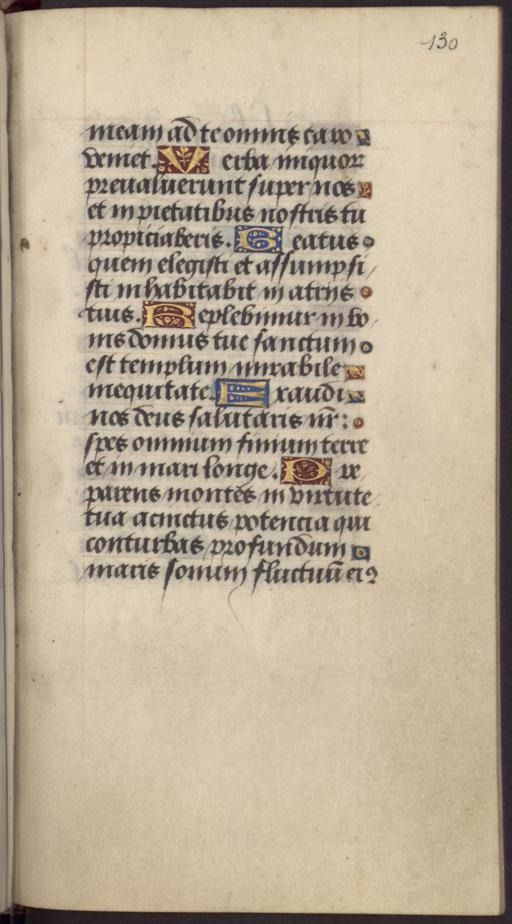 130
meam ad te omnis caro
veniet. Verba iniquorz
prevaluerunt super nos
et inpietatibus nostris tu
propiciaberis. Beatus
quem elegisti et assumpsi
sti inhabitabit in atriis
tuis. Replebimur in bo
nis domus tue sanctum
est templum mirabile
in equitate. Exaudi
nos deus salutaris nr̄:
spes omnium finium terre
et in mari longe. Pre
parens montes in virtute
tua acinctus potencia qui
conturbas profundum
maris sonum fluctuū eiꝰ